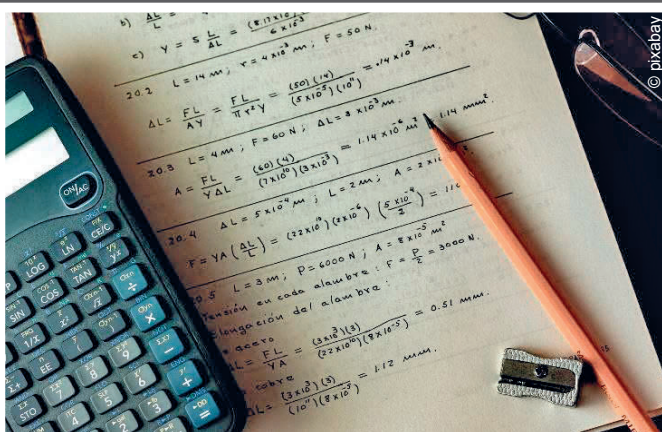 b) ΔL/L =
c) Y = 5 L/ΔL = (8.17×10
6×10⁻³
20.2 L = 14 m ; r = 4×10⁻³ m ; F = 50 N.
ΔL = FL/AY = FL/πr²Y = (50)(14)/(5×10⁻⁵)(10¹¹) = .14×10⁻³ m.
20.3 L = 4 m ; F = 60 N ; ΔL = 3×10⁻³ m.
A = FL/YΔL = (60)(4)/(7×10¹⁰)(3×10⁻³) = 1.14×10⁻⁶ m² 1.14 mm²
20.4 ΔL = 5×10⁻⁴ m ; L = 2 m ; A = 2×10
F = YA (ΔL/L) = (22×10¹⁰)(2×10⁻⁶) (5×10⁻⁴/2) = 110
0.5 L = 3 m ; P = 6000 N ; A = 8×10⁻⁵ m²
Tensión en cada alambre : F = P/2 = 3000 N.
longación del alambre :
acero
ΔL = FL/YA = (3×10³)(3)/(22×10¹⁰)(8×10⁻⁵) = 0.51 mm.
cobre
ΔL = (3×10³)(3)/(10¹¹)(8×10⁻⁵) = 1.12 mm.
ON/AC
LOG LN CE/C
SIN COS TAN yˣ
1/x x² √x ÷
Σ+ EE ( ) ×
STO 7 8 9 −
4 5 6 +
=
© pixabay